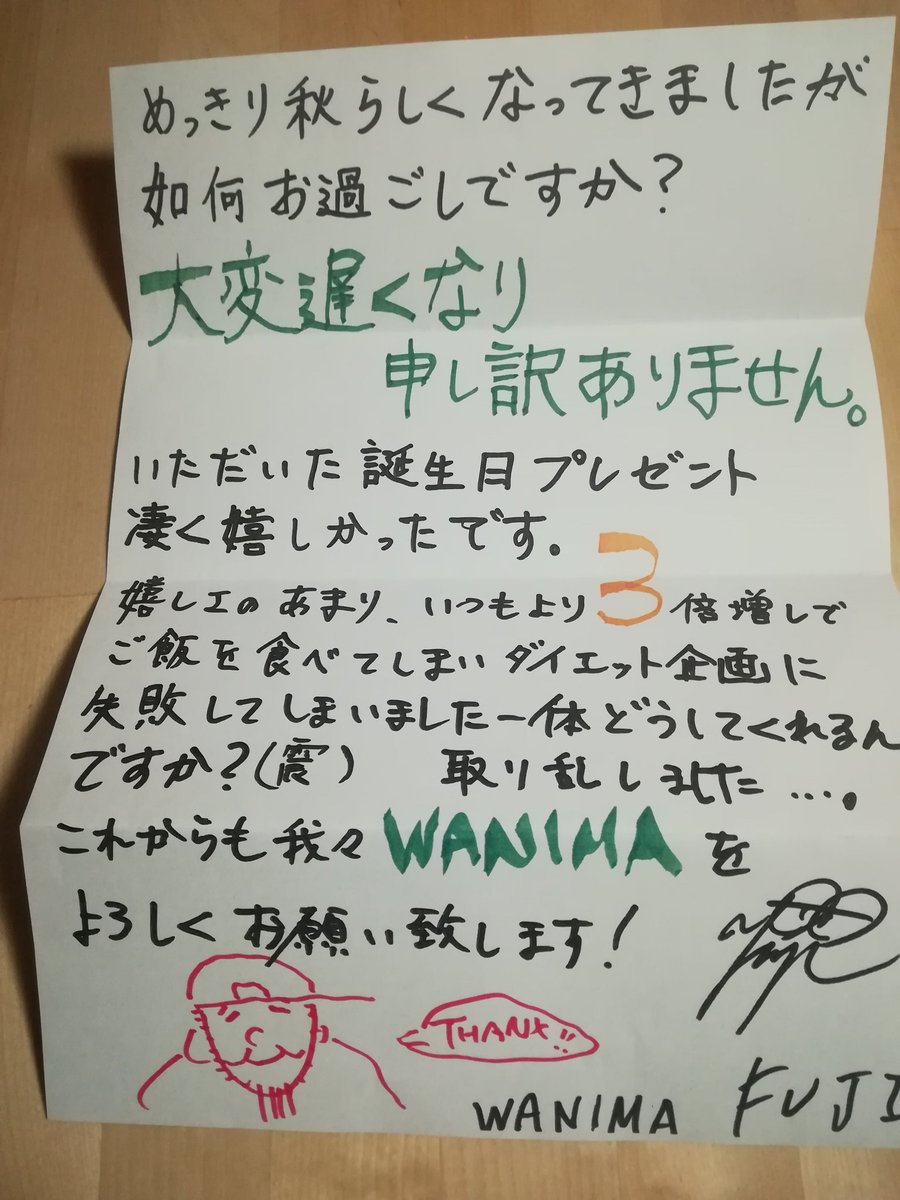 めっきり秋らしくなってきましたが
如何お過ごしですか?
大変遅くなり
申し訳ありません。
いただいた誕生日プレゼント
凄く嬉しかったです。
嬉しエのあまり、いつもより3倍増しで
ご飯を食べてしまいダイエット企画に
失敗してしまいました一体どうしてくれるん
ですか?(震) 取り乱しました…。
これからも我々WANIMAを
よろしくお願い致します!
THANX!!
WANIMA FUJI